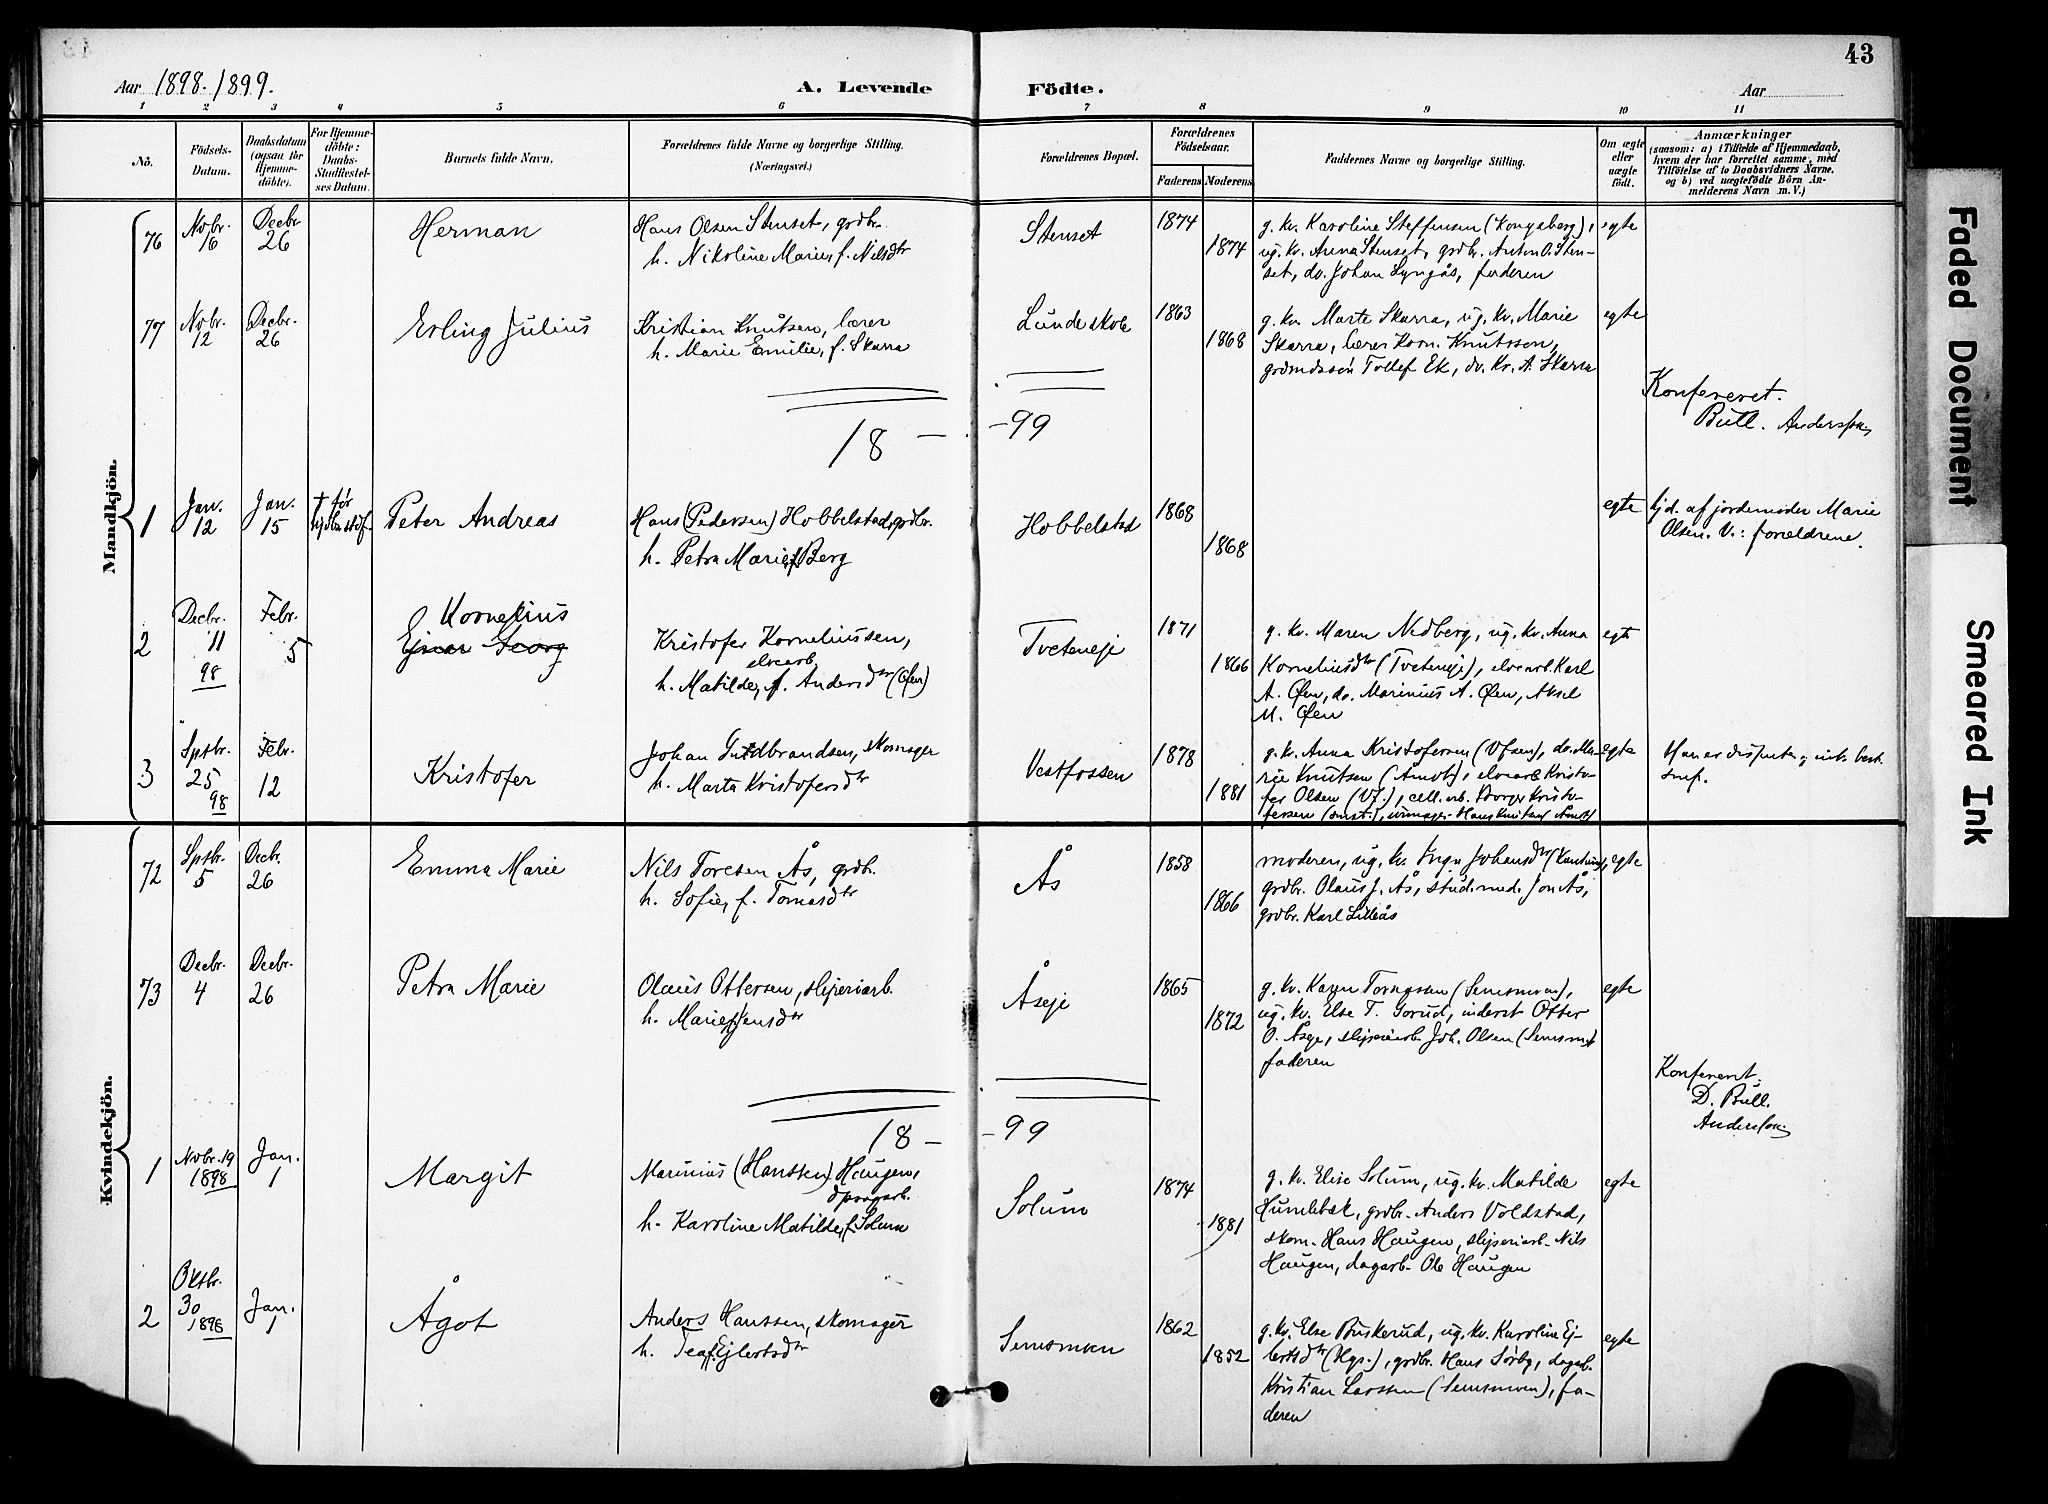 43
Aar 1898-1899.
A. Levende Födte.
Aar
1 2 3 4 5 6 7 8 9 10 11
No.
Födsels-Datum.
Daabsdatum (ogsaa for Hjemme-döbte).
For Hjemme-döbte: Daabs-Stadfæstel-ses Datum.
Barnets fulde Navn.
Forældrenes fulde Navne og borgerlige Stilling.
(Næringsvei.)
Forældrenes Bopæl.
Forældrenes Födselsaar.
Faderens Moderens
Faddernes Navne og borgerlige Stilling.
Om ægte eller uægte födt.
Anmærkninger
(saasom: a) i Tilfælde af Hjemmedaab,
hvem der har forrettet samme, med
Tilföielse af to Daabsvidners Navne,
og b) ved uægtefödte Börn An-
melderens Navn m. V.)
Mandkjön.
76 Novbr. 16 Decbr. 26 Herman
Hans Olsen Stenset, grdbr.
h. Nikoline Marie, f. Nilsdtr
Stenset 1874 1874
g. kv. Karoline Steffensen (Kongsberg),
ug. kv. Anna Stenset, grdbr. Anton O. Sten-
set, do. Johan Lyngås, faderen
egte
77 Novbr. 12 Decbr. 26 Erling Julius
Kristian Knutsen, lærer
h. Marie Emilie, f. Skarra
Lunde skole 1863 1868
g. kv. Marte Skarra, ug. kv. Marie
Skarra, lærer Korn. Knutssen,
grdmdssön Tollef Ek, do. Kr. A. Skarra
egte
Konfereret.
Bull. Anderssen
18 - - 99
1 Jan. 12 Jan. 15 † før Peter Andreas
Hans (Pedersen) Hobbelstad, grdbr.
h. Petra Marie, f. Berg
Hobbelstad 1868 1868
egte
hjd. af jordemoder Marie
Olsen. V.: forældrene.
2 Decbr. 11 98 Febr. 5 Kornelius
Ejnar Georg
Kristofer Korneliussen,
elvearb.
h. Matilde, f. Andersdtr (Øen)
Tveteneje 1871 1866
g. kv. Maren Nedberg, ug. kv. Anna
Korneliusdtr (Tveteneje), elvearb. Karl
A. Øen, do. Marinius A. Øen, Aksel
M. Øen
egte
3 Sptbr. 25 98 Febr. 12 Kristofer
Johan Guldbrandsen, skomager
h. Marta Kristofersdtr
Vestfossen 1878 1881
g. kv. Anna Kristofersen (Vfsen), do. Ma-
rie Knutsen (Åmot), elvearb Kristo-
fer Olsen (Vf.), cell. arb. Borger Kristo-
egte
Kvindekjön.
72 Sptbr. 5 Decbr. 26 Emma Marie
Nils Toresen Ås, grdbr.
h. Sofie, f. Tomasdtr
Ås 1858 1866
moderen, ug. kv. Inga Johansdtr
grdbr. Olaus J. Ås, stud. med. Jon Ås,
grdbr. Karl Lilleås
egte
73 Decbr. 4 Decbr. 26 Petra Marie
Olaus Ottersen, sliperiarb.
h. Marie, f. Jensdtr
Åseje 1865 1872
g. kv. Karen Torgersen (Semsmoen),
ug. kv. Else T. Gorud, inderst Otter
O. Åseje, sliperiarb. Joh. Olsen (Semsm.)
faderen
egte
Konfereret.
D. Bull.
Anderssen
18 - - 99
1 Novbr. 19 1898 Jan. 1 Margit
Marinius (Hanssen) Haugen,
h. Karoline Matilde, f. Solum
Solum 1874 1881
g. kv. Elise Solum, ug. kv. Matilde
Humlebæk, grdbr. Anders Voldstad,
skom. Hans Haugen, sliperiarb. Nils
Haugen, dagarb. Ole Haugen
egte
2 Oktbr. 30 1898 Jan. 1 Ågot
Anders Hanssen, skomager
h. Tea, f. Ejlertsdtr
Semsmoen 1862 1852
g. kv. Else Buskerud, ug. kv. Karoline Ej-
lertsdtr (Hgs.), grdbr. Hans Sørby, dagarb.
Kristian Larssen (Semsmoen), fa-
deren
egte
Faded Document
Smeared Ink